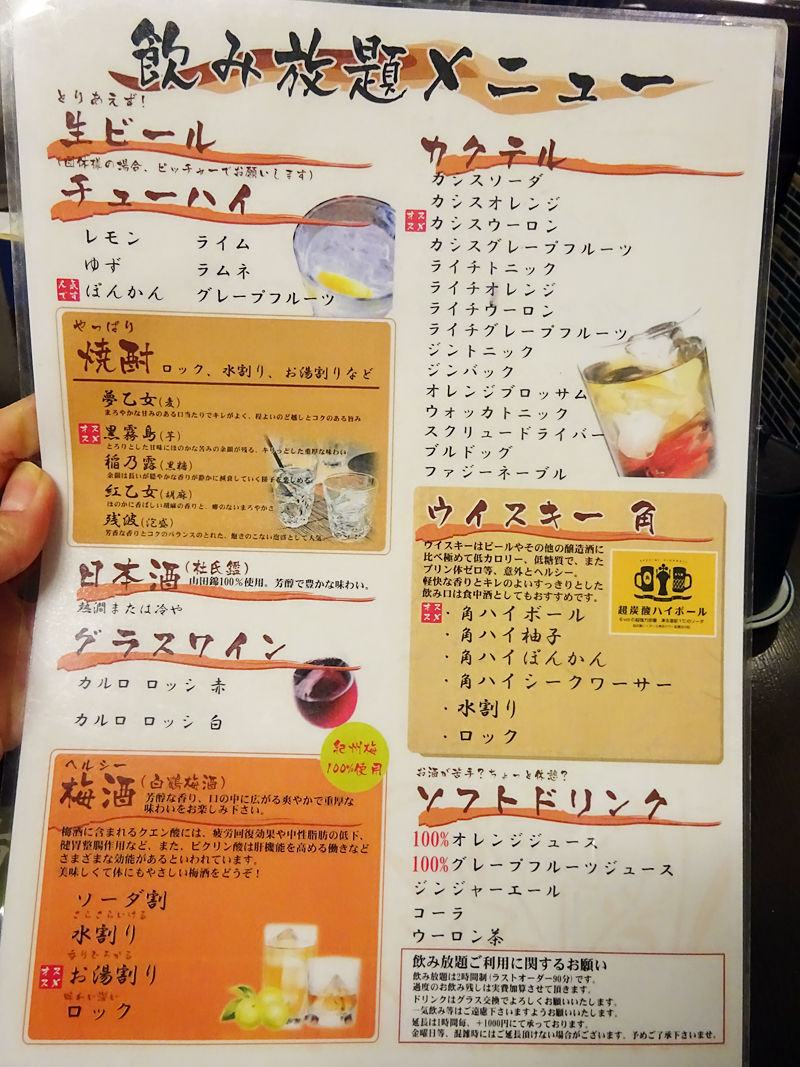 飲み放題メニュー
とりあえず!
生ビール
(団体様の場合、ピッチャーでお願いします)
チューハイ
レモン ライム
ゆず ラムネ
人気です ぽんかん グレープフルーツ
やっぱり
焼酎 ロック、水割り、お湯割りなど
夢乙女(麦)
まろやかな甘みのある口当たりでキレがよく、程よいのど越しとコクのある旨み
オススメ 黒霧島(芋)
とろりとした甘味にほのかな苦みの余韻が残る、キリっとした重厚な味わい
稲乃露(黒糖)
余韻は長いが穏やかな香りが静かに減衰していく様子を楽しめる
紅乙女(胡麻)
ほのかに香ばしい胡麻の香りと、癖のないまろやかさ
残波(泡盛)
芳香な香りとコクのバランスのとれた、飽きのこない泡盛として人気
日本酒(杜氏鑑)
山田錦100%使用。芳醇で豊かな味わい。
熱澗または冷や
グラスワイン
カルロ ロッシ 赤
カルロ ロッシ 白
紀州梅
100%使用
ヘルシー
梅酒(白鶴梅酒)
芳醇な香り、口の中に広がる爽やかで重厚な
味わいをお楽しみ下さい。
梅酒に含まれるクエン酸には、疲労回復効果や中性脂肪の低下、
健胃整腸作用など、また、ピクリン酸は肝機能を高める働きなど
さまざまな効能があるといわれています。
美味しくて体にもやさしい梅酒をどうぞ!
ソーダ割
さらさらいける
水割り
香りひろがる
オススメ お湯割り
味わい深い
ロック
カクテル
カシスソーダ
カシスオレンジ
オススメ カシスウーロン
カシスグレープフルーツ
ライチトニック
ライチオレンジ
ライチウーロン
ライチグレープフルーツ
ジントニック
ジンバック
オレンジブロッサム
ウォッカトニック
スクリュードライバー
ブルドッグ
ファジーネーブル
ウイスキー 角
ウイスキーはビールやその他の醸造酒に
比べ極めて低カロリー、低糖質で、また
プリン体ゼロ等、意外とヘルシー。
軽快な香りとキレのよいすっきりとした
飲み口は食中酒としてもおすすめです。
超炭酸ハイボール
オススメ ・角ハイボール
・角ハイ柚子
・角ハイぽんかん
・角ハイシークワーサー
・水割り
・ロック
お酒が苦手?ちょっと休憩?
ソフトドリンク
100%オレンジジュース
100%グレープフルーツジュース
ジンジャーエール
コーラ
ウーロン茶
飲み放題ご利用に関するお願い
飲み放題は2時間制(ラストオーダー90分)です。
過度のお飲み残しは実費加算させて頂きます。
ドリンクはグラス交換でよろしくお願いいたします。
一気飲み等はご遠慮下さいますようお願いいたします。
延長は1時間毎、+1000円にて承っております。
金曜日等、混雑時にはご延長頂けない場合がございます。予めご了承下さいませ。